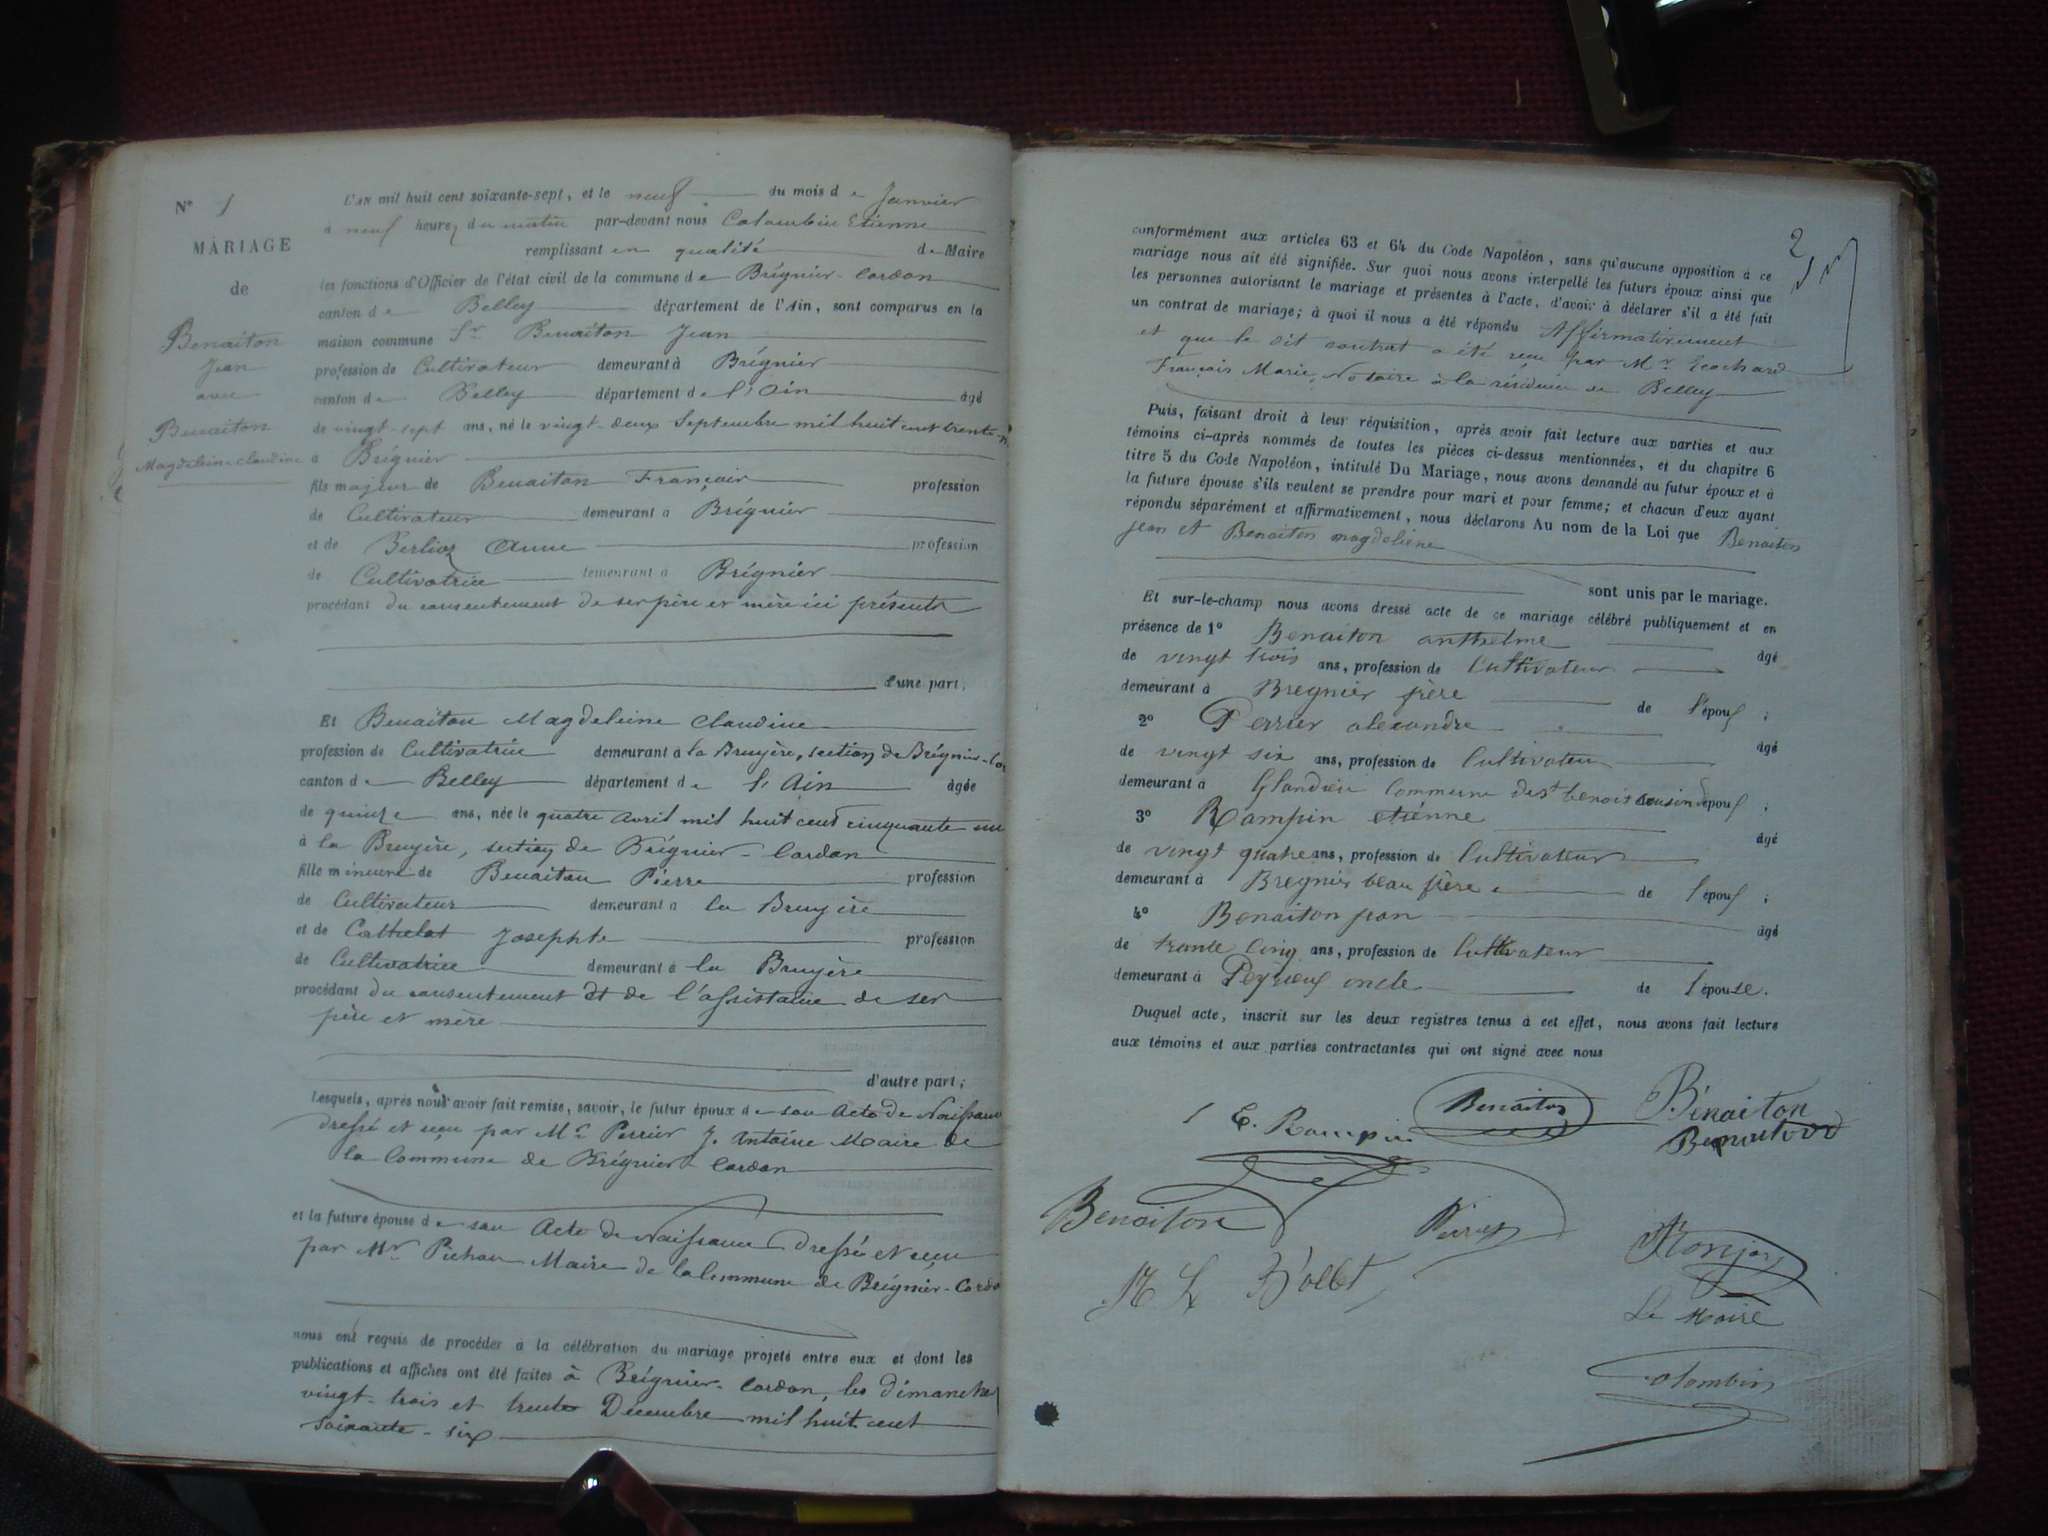 N° 1
MARIAGE
de
Benaiton
Jean
avec
Benaiton
Magdeleine Claudine
L'AN mil huit cent soixante-sept, et le neuf du mois de Janvier
à neuf heures du matin par-devant nous Colombin Etienne
remplissant en qualité de Maire
les fonctions d'Officier de l'état civil de la commune de Brégnier-Cordon
canton de Belley département de l'Ain, sont comparus en la
maison commune Sr Benaiton Jean
profession de Cultivateur demeurant à Brégnier
canton de Belley département de l'Ain âgé
de vingt-sept ans, né le vingt-deux Septembre mil huit cent trente-
à Brégnier
fils majeur de Benaiton François profession
de Cultivateur demeurant à Brégnier
et de Berlioz Anne profession
de Cultivatrice demeurant à Brégnier
procédant du consentement de ses père et mère ici présents
d'une part;
Et Benaiton Magdeleine Claudine
profession de Cultivatrice demeurant à la Bruyère, section de Brégnier-Cor
canton de Belley département de l'Ain âgée
de quinze ans, née le quatre Avril mil huit cent cinquante un
à la Bruyère, section de Brégnier-Cordon
fille mineure de Benaiton Pierre profession
de Cultivateur demeurant à la Bruyère
et de Cathelat Josephte profession
de Cultivatrice demeurant à la Bruyère
procédant du consentement et de l'assistance de ses
père et mère
d'autre part;
Lesquels, après nous avoir fait remise, savoir, le futur époux de son Acte de Naissance
dressé et reçu par Mr Perrier J. Antoine Maire de
la Commune de Brégnier-Cordon
et la future épouse de son Acte de Naissance dressé et reçu
par Mr Pichon Maire de la Commune de Brégnier-Cordo
nous ont requis de procéder à la célébration du mariage projeté entre eux et dont les
publications et affiches ont été faites à Brégnier-Cordon, les dimanches
vingt-trois et trente Décembre mil huit cent
soixante-six
2
conformément aux articles 63 et 64 du Code Napoléon, sans qu'aucune opposition à ce
mariage nous ait été signifiée. Sur quoi nous avons interpellé les futurs époux ainsi que
les personnes autorisant le mariage et présentes à l'acte, d'avoir à déclarer s'il a été fait
un contrat de mariage; à quoi il nous a été répondu Affirmativement
et que le dit contrat a été reçu par Mr
François Marie, Notaire à la résidence de Belley
Puis, faisant droit à leur réquisition, après avoir fait lecture aux parties et aux
témoins ci-après nommés de toutes les pièces ci-dessus mentionnées, et du chapitre 6
titre 5 du Code Napoléon, intitulé Du Mariage, nous avons demandé au futur époux et à
la future épouse s'ils veulent se prendre pour mari et pour femme; et chacun d'eux ayant
répondu séparément et affirmativement, nous déclarons Au nom de la Loi que Benaiton
jean et Benaiton magdeleine
sont unis par le mariage.
Et sur-le-champ nous avons dressé acte de ce mariage célébré publiquement et en
présence de 1° Benaiton anthelme âgé
de vingt trois ans, profession de Cultivateur
demeurant à Bregnier frère de l'époux;
2° Perrier alexandre âgé
de vingt six ans, profession de Cultivateur
demeurant à Glandieu Commune de st benoit cousin de l'époux;
3° Rampin etiénne âgé
de vingt quatre ans, profession de Cultivateur
demeurant à Bregnier beau frère de l'époux;
4° Benaiton jean âgé
de trente cinq ans, profession de Cultivateur
demeurant à Peyrieux oncle de l'épouse.
Duquel acte, inscrit sur les deux registres tenus à cet effet, nous avons fait lecture
aux témoins et aux parties contractantes qui ont signé avec nous
E. Rampin Benaiton Bénaiton
Benaiton
Benaiton
Le Maire
Colombin